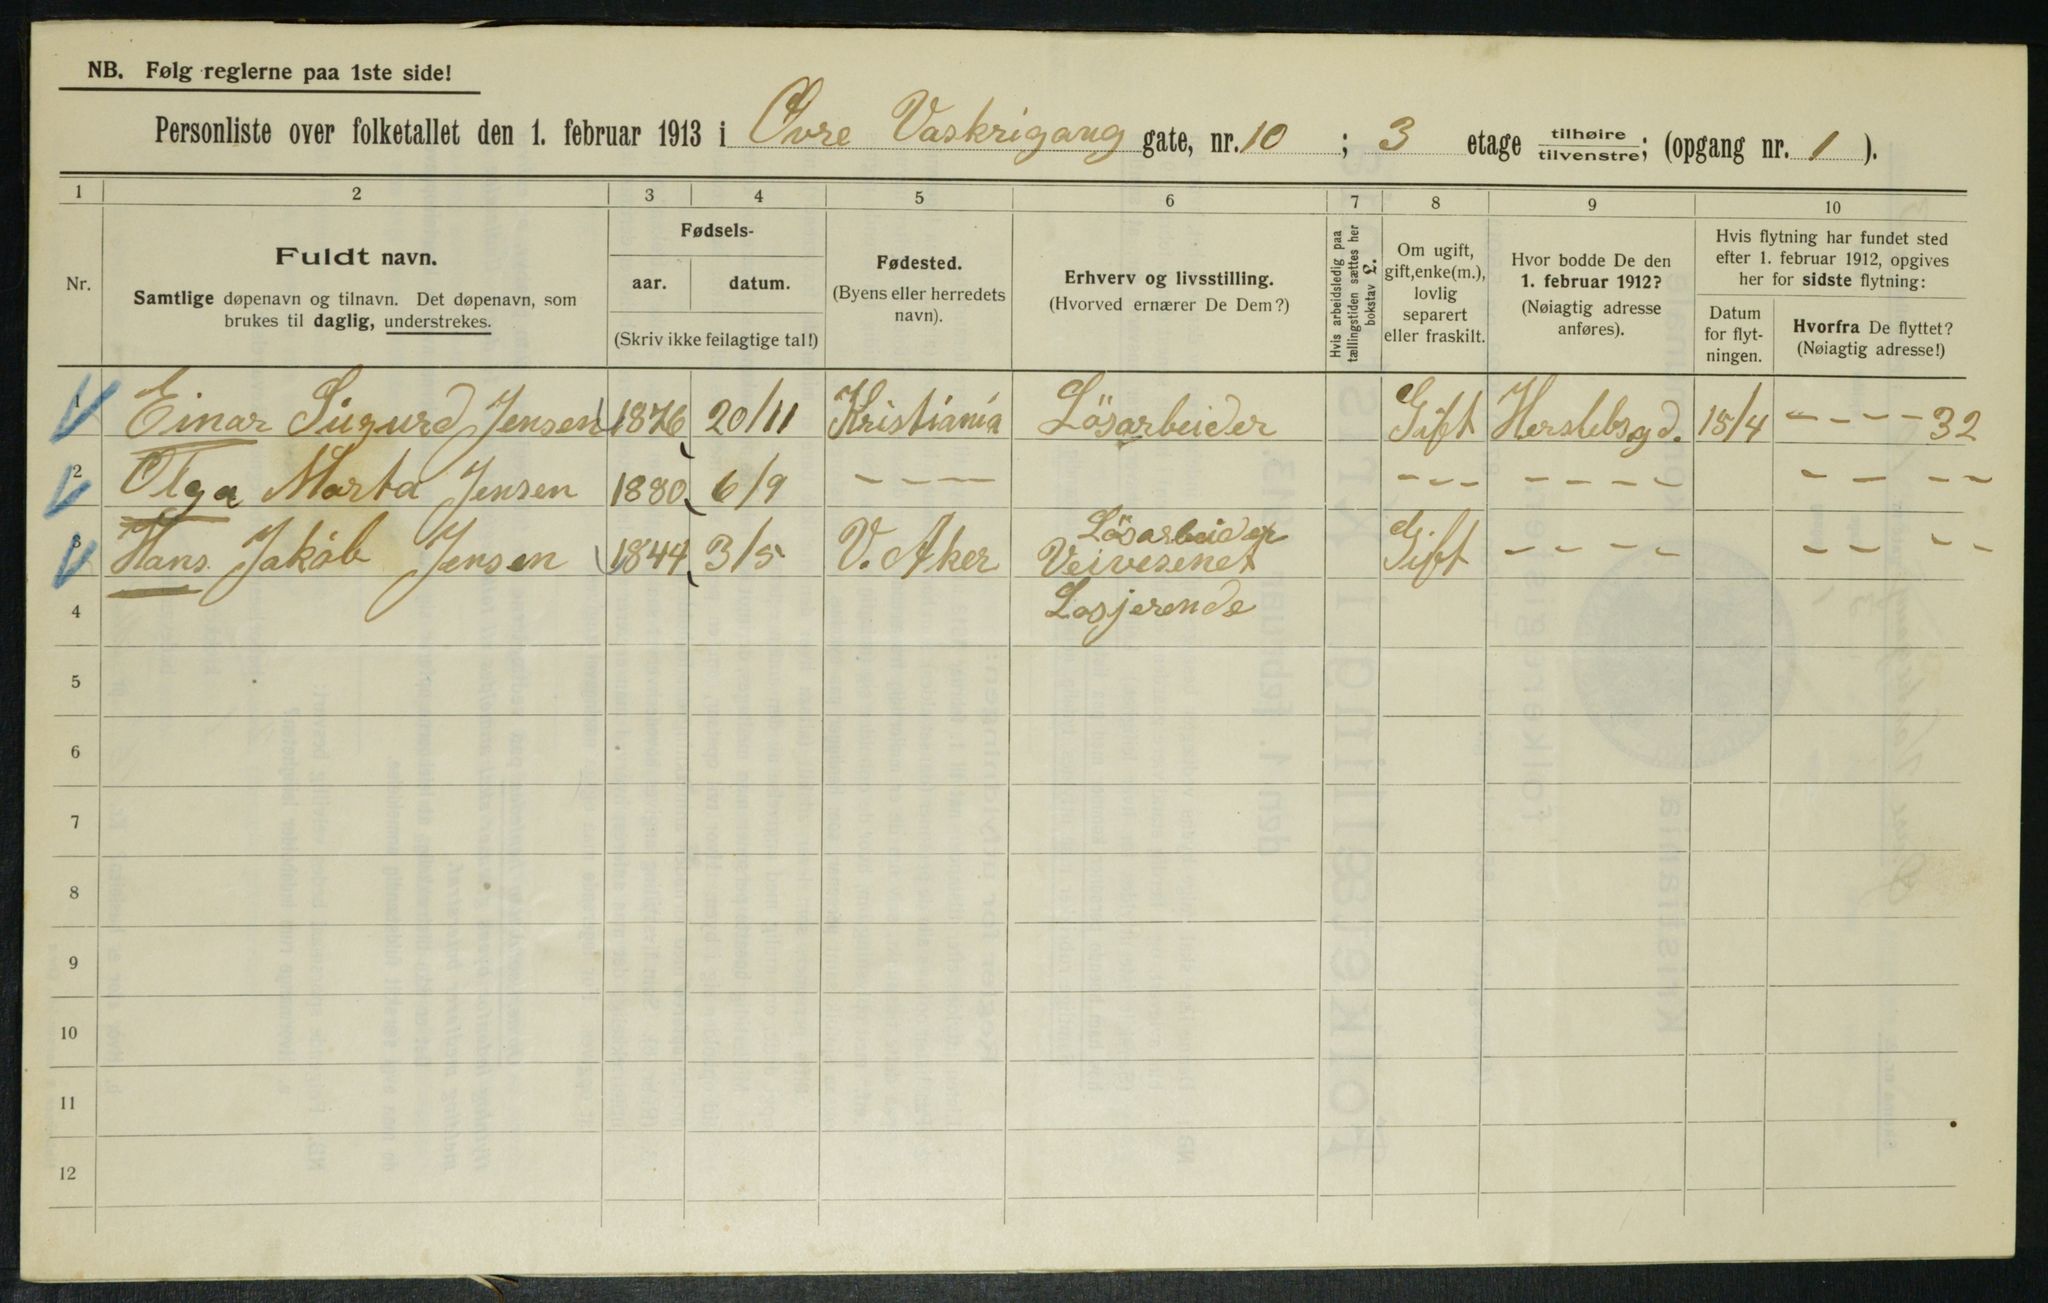 NB. Følg reglerne paa 1ste side!
Personliste over folketallet den 1. februar 1913 i Øvre Vaskrigang gate, nr. 10 ; 3 etage tilhøire/tilvenstre; (opgang nr. 1 ).
1 2 3 4 5 6 7 8 9 10
Nr.
Fuldt navn.
Samtlige døpenavn og tilnavn. Det døpenavn, som
brukes til daglig, understrekes.
Fødsels-
aar. datum.
(Skriv ikke feilagtige tal!)
Fødested.
(Byens eller herredets
navn).
Erhverv og livsstilling.
(Hvorved ernærer De Dem?)
Hvis arbeidsledig paa
tællingstiden sættes her
bokstav £.
Om ugift,
gift, enke(m.),
lovlig
separert
eller fraskilt.
Hvor bodde De den
1. februar 1912?
(Nøiagtig adresse
anføres).
Hvis flytning har fundet sted
efter 1. februar 1912, opgives
her for sidste flytning:
Datum
for flyt-
ningen.
Hvorfra De flyttet?
(Nøiagtig adresse!)
1 Einar Sigurd Jensen 1876 20/11 Kristiania Løsarbeider Gift Herslebsgd. 15/4 - - - - 32
2 Olga Marta Jensen 1880 6/9 - - - - - - - - - - - - - - -
Løsarbeider
3 Hans Jakob Jensen 1844 3/5 V. Aker Veivesenet Gift - - - - - - - -
4 Losjerende
5
6
7
8
9
10
11
12